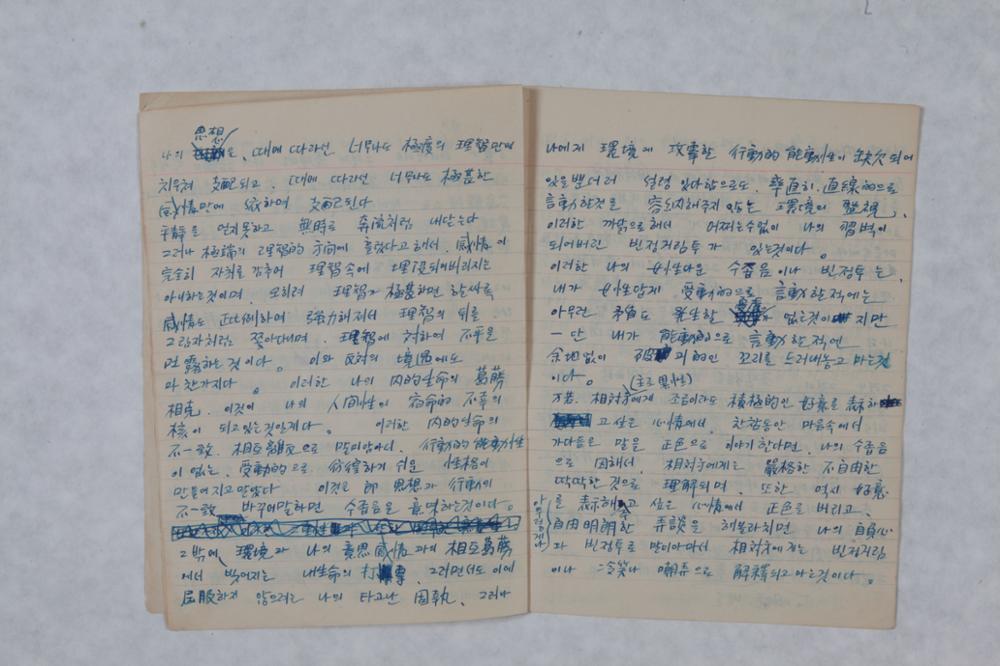 思想
나의 은, 때에 따라선 너무나도 極度의 理智만에
치우쳐 支配되고, 때에 따라선 너무나도 極甚한
感情만에 依하여 支配된다
平靜을 얻지못하고 無時로 奔流처럼 내닫는다
그러나 極端의 理智的 方向에 흘렀다고해서, 感情이
完全히 자취를 감추어 理智속에 埋沒되어버리지는
아니하는것이며, 오히려 理智가 極甚하면 할쓰록
感情도 正比例하여 强力해져서 理智의 뒤를
그림자처럼 쫓아다니며, 理智에 対하여 不平을
吐露하는 것이다。 이와 反対의 境遇에도
마찬가지다 。 이러한 나의 内的生命의 葛藤
相克. 이것이 나의 人間性이 宿命的 不幸의
核이 되고있는것인게다。 이러한 内的生命의
不一致. 相互離反으로 말미암아서, 行動的 能動性
이 없는, 受動的으로 彷徨하기 쉬운 性格이
만들어지고말았다 이것은 即 思想과 行動의
不一致 바꾸어말하면 수줍음을 意味하는것이다。
그밖에 環境과 나의 意思感情과의 相互葛藤
에서 빚어지는 내生命의 打擊, 그러면서도 이에
屈服하지 않으려는 나의 타고난 固執, 그러나
나에게 環境에 攻擊할 行動的 能動性이 缺欠되어
있을뿐더러 설령 있다함으로도, 率直히, 直線的으로
言動할것을 容納해주지 않는 環境의 監視,
이러한 까닭으로해서 어쩌는수없이 나의 習癖이
되어버린 빈정거림투가 있는것이다。
이러한 나의 女性다운 수줍음이나 빈정투는,
내가 女性답게 受動的으로 言動할적에는
아무런 矛盾도 発生할 念慮가 없는것이지만
一旦 내가 能動的으로 言動할적엔
余地없이 破괴的인 꼬리를 드러내놓고마는것
이다。 (主로 異性)
万若, 相対方에게 조금이라도 積極的인 好意를 表示하
고싶은 心情에서, 한참동안 마음속에서
가다듬은 말을 正色으로 이야기한다면, 나의 수줍음
으로 因해서, 相対方에게는 嚴格한 不自由한
딱딱한 것으로 理解되며, 또한 역시 好意
를 表示하고 싶은 心情에서 正色을 버리고,
아무렇게나
自由明朗한 弄談을 해볼라치면 나의 自負心
과 빈정투로 말미암아서 相対方에게는 빈정거림
이나 冷笑나 嘲弄으로 解釋되고마는것이다。